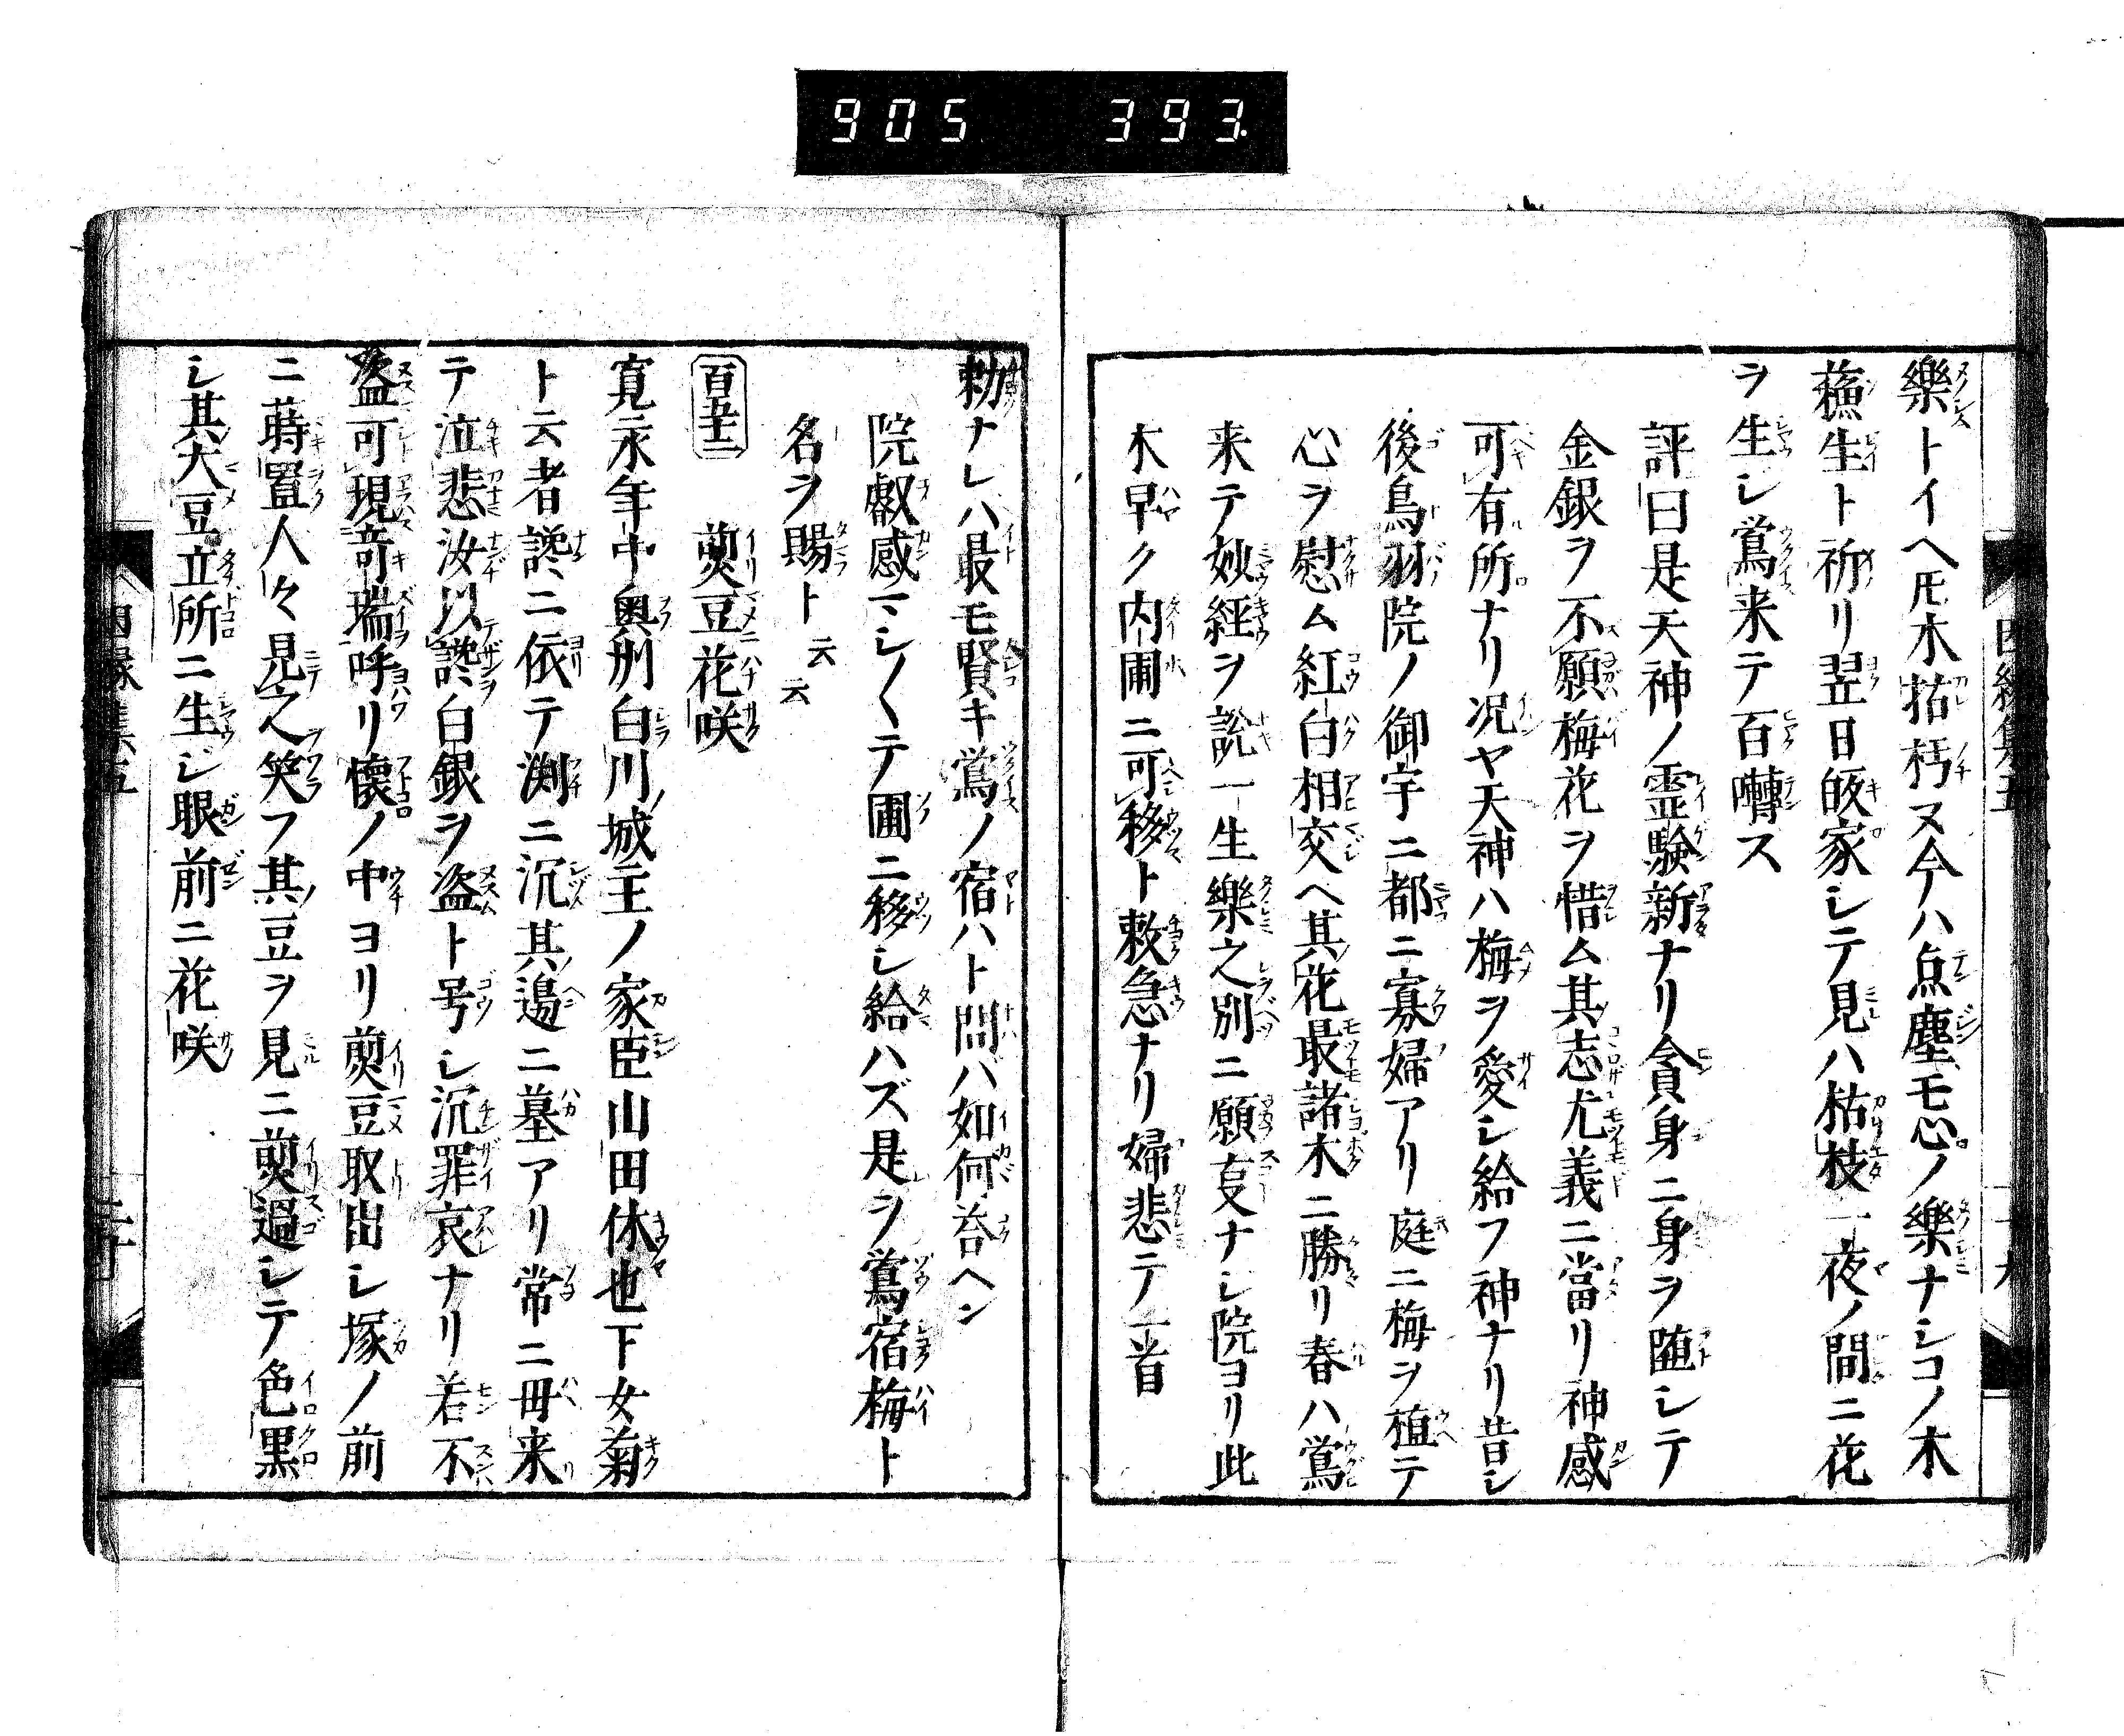 905 393.
樂トイヘ𪜈木拈朽ヌ今ハ点塵モ心ノ樂ナシコノ木
蘓生ト祈リ翌日皈家シテ見ハ枯枝一夜ノ間ニ花
ヲ生シ鶯来テ百囀ス
評曰是天神ノ霊験新ナリ貪身ニ身ヲ堕シテ
金銀ヲ不願梅花ヲ惜ム其志尤義ニ當リ神感
可有所ナリ况ヤ天神ハ梅ヲ愛シ給フ神ナリ昔シ
後鳥羽院ノ御宇ニ都ニ寡婦アリ庭ニ梅ヲ植テ
心ヲ慰ム紅白相交ヘ其花最諸木ニ勝リ春ハ鶯
来テ妙経ヲ説一生樂之別ニ願叓ナシ院ヨリ此
木早ク内圃ニ可移ト敕急ナリ婦悲テ一首
勅ナレハ最モ賢キ鶯ノ宿ハト問ハ如何荅ヘン
院叡感マシ〱テ圃ニ移シ給ハズ是ヲ鶯宿梅ト
名ヲ賜ト云云
百五十二 煎豆花咲
寛永年中奥刕白川城主ノ家臣山田休也下女菊
ト云者讒ニ依テ渕ニ沉其邉ニ墓アリ常ニ毋来
テ泣悲汝以讒白銀ヲ盗ト号シ沉罪哀ナリ若不
盗可現竒瑞呼リ懐ノ中ヨリ煎豆取出シ塚ノ前
ニ蒔置人々見之笑フ其豆ヲ見ニ煎過シテ色黒
シ其大豆立所ニ生ジ眼前ニ花咲
因縁集五